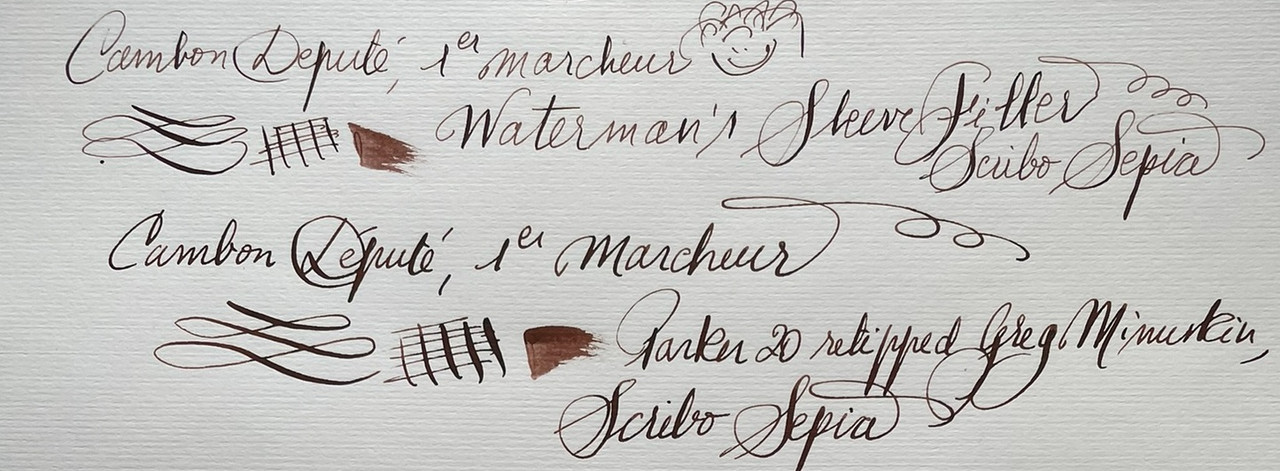 Cambon Deputé, 1er marcheur
Waterman's Sleeve Filler
Scribo Sepia
Cambon Député, 1er Marcheur
Parker 20 retipped Greg Minuskin,
Scribo Sepia